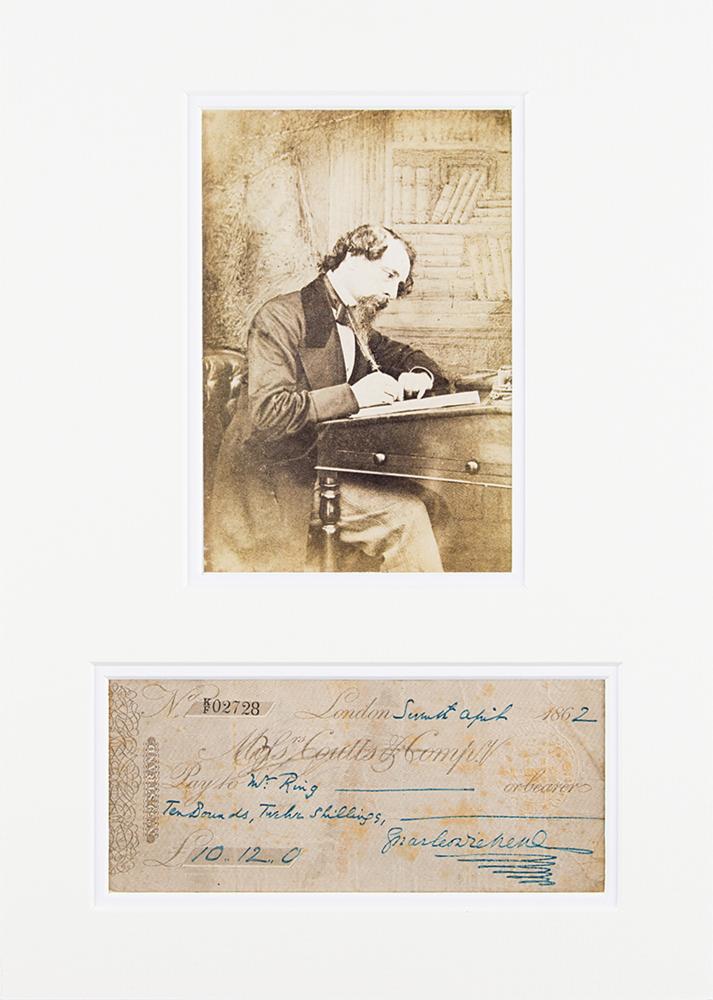 No. K/F 02728 London Seventh April 1862
Messrs. Coutts & Compy.
Pay to Mr. Ring or bearer
Ten Pounds, Twelve Shillings,
£10.. 12.. 0 Charles Dickens
STRAND